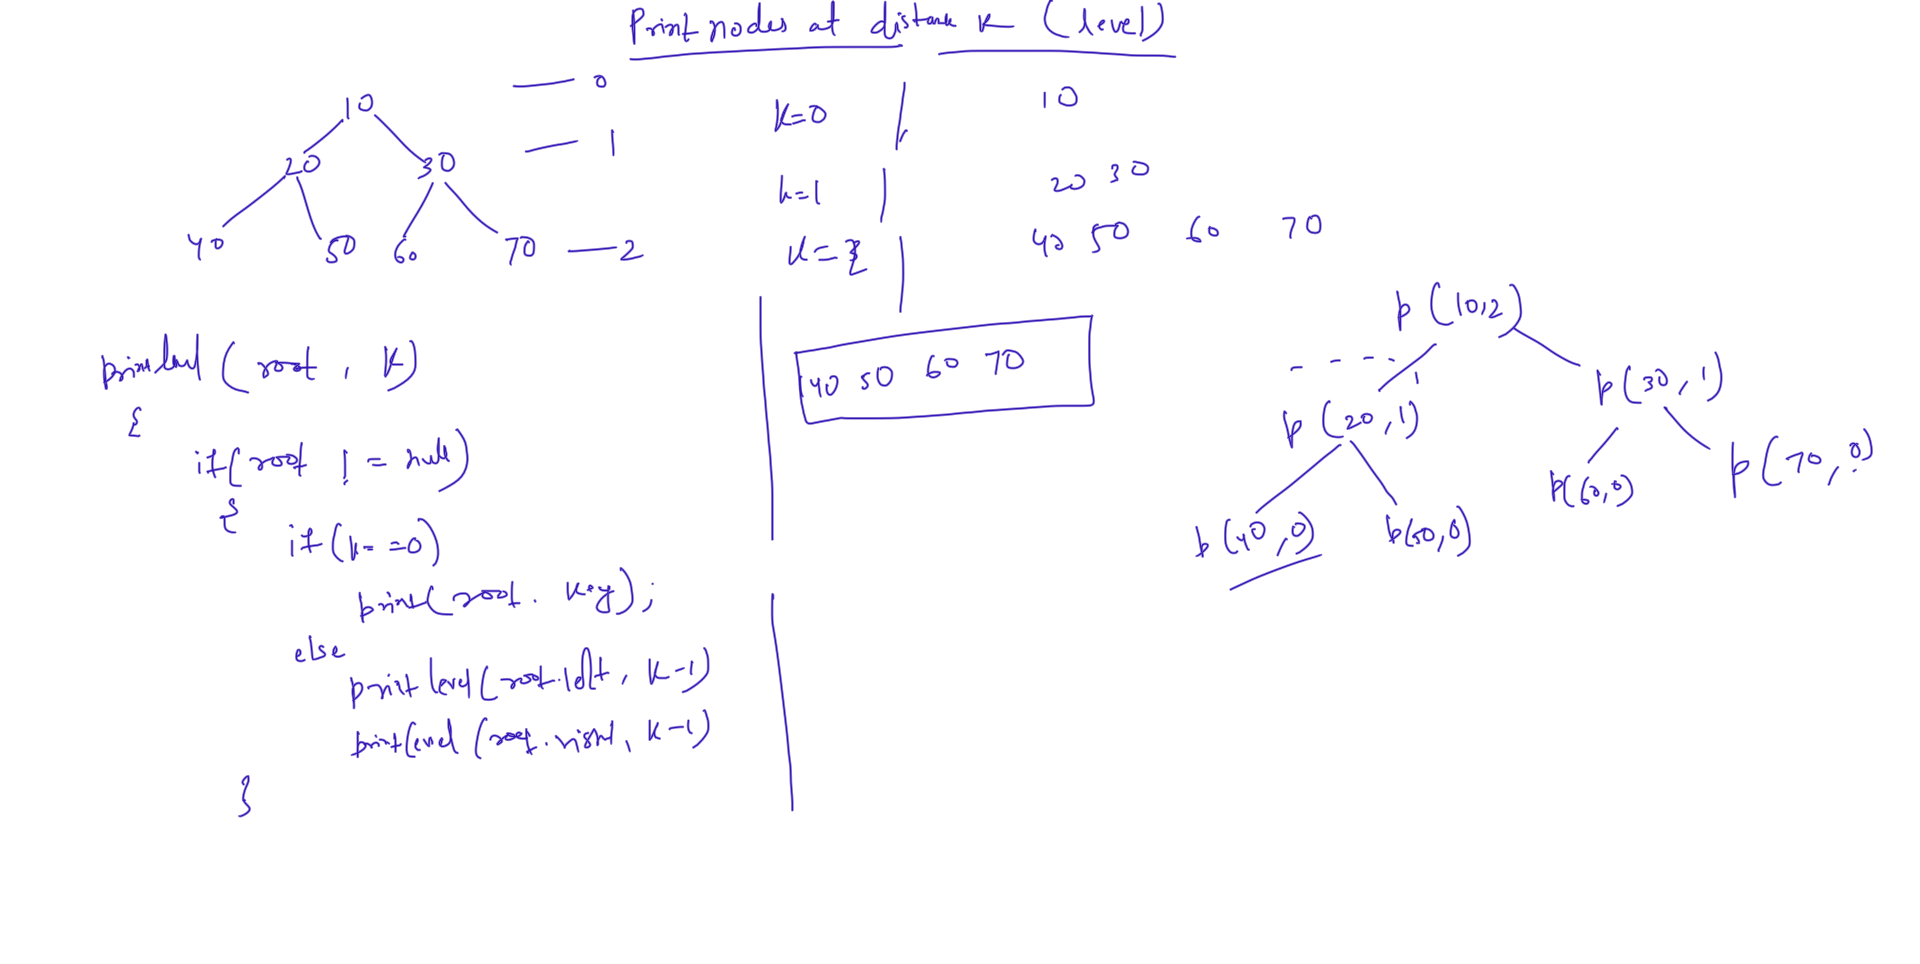 Print nodes at distank K (level)
10 — 0
20 30 — 1
40 50 60 70 — 2
K=0 | 10
k=1 | 20 30
K=2 | 40 50 60 70
printlevel (root, K)
{
if(root != null)
{
if(k==0)
print(root.key);
else
print level(root.left, K-1)
printlevel (root.right, K-1)
}
40 50 60 70
p (10,2)
p (20,1) p(30,1)
p(40,0) p(50,0) p(60,0) p(70,0)